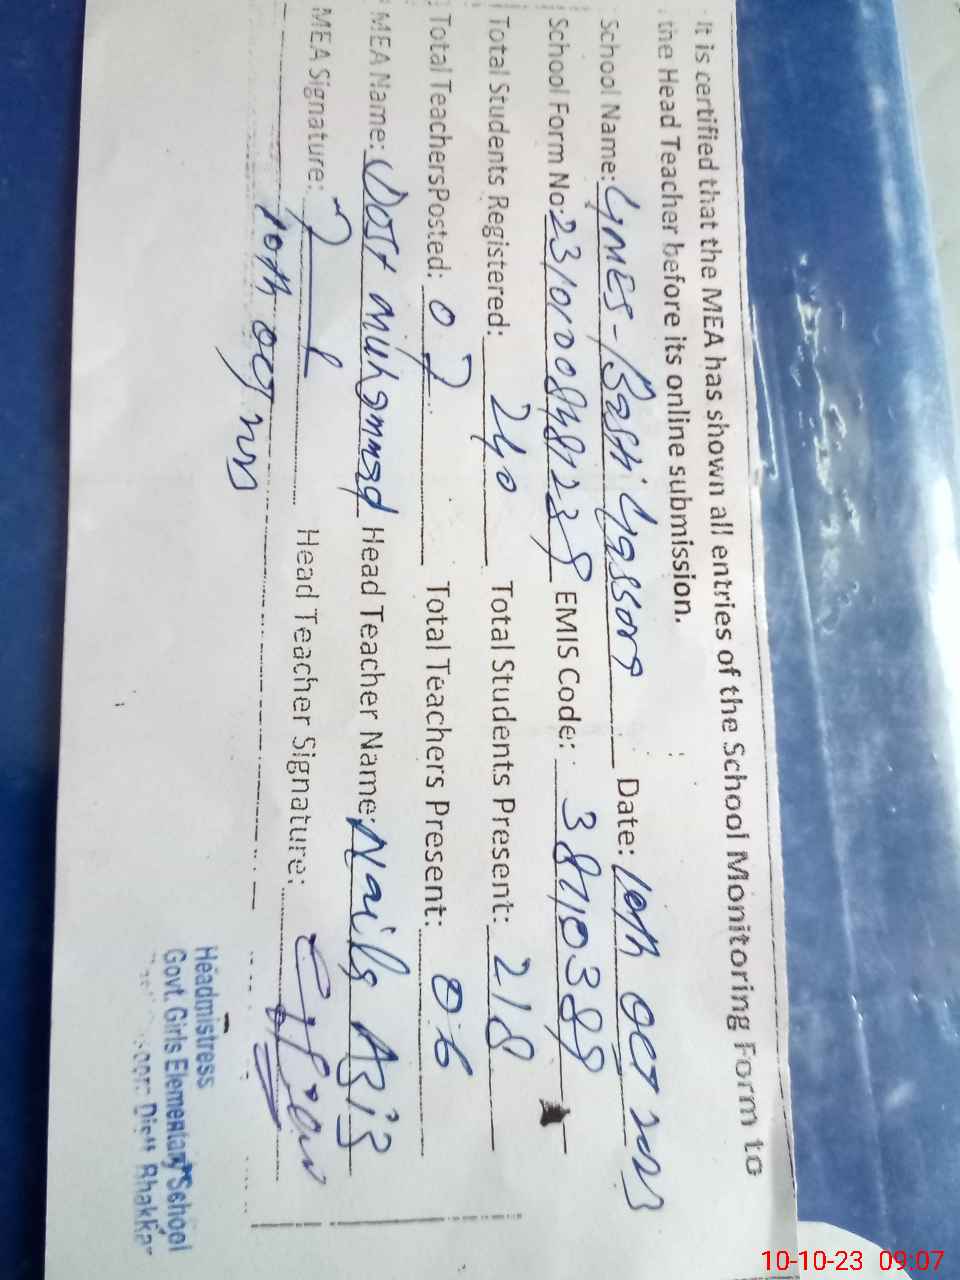 It is certified that the MEA has shown all entries of the School Monitoring Form to
the Head Teacher before its online submission.
School Name: GMES-Basti Date: 10th Oct 2023
School Form No: EMIS Code:
Total Students Registered: 240 Total Students Present: 218
Total Teachers Posted: 07 Total Teachers Present: 06
MEA Name: Dost Muhammad Head Teacher Name: Naila
MEA Signature: Head Teacher Signature:
10th Oct
Headmistress
Govt. Girls Elementary School
Distt Bhakkar
10-10-23 09:07